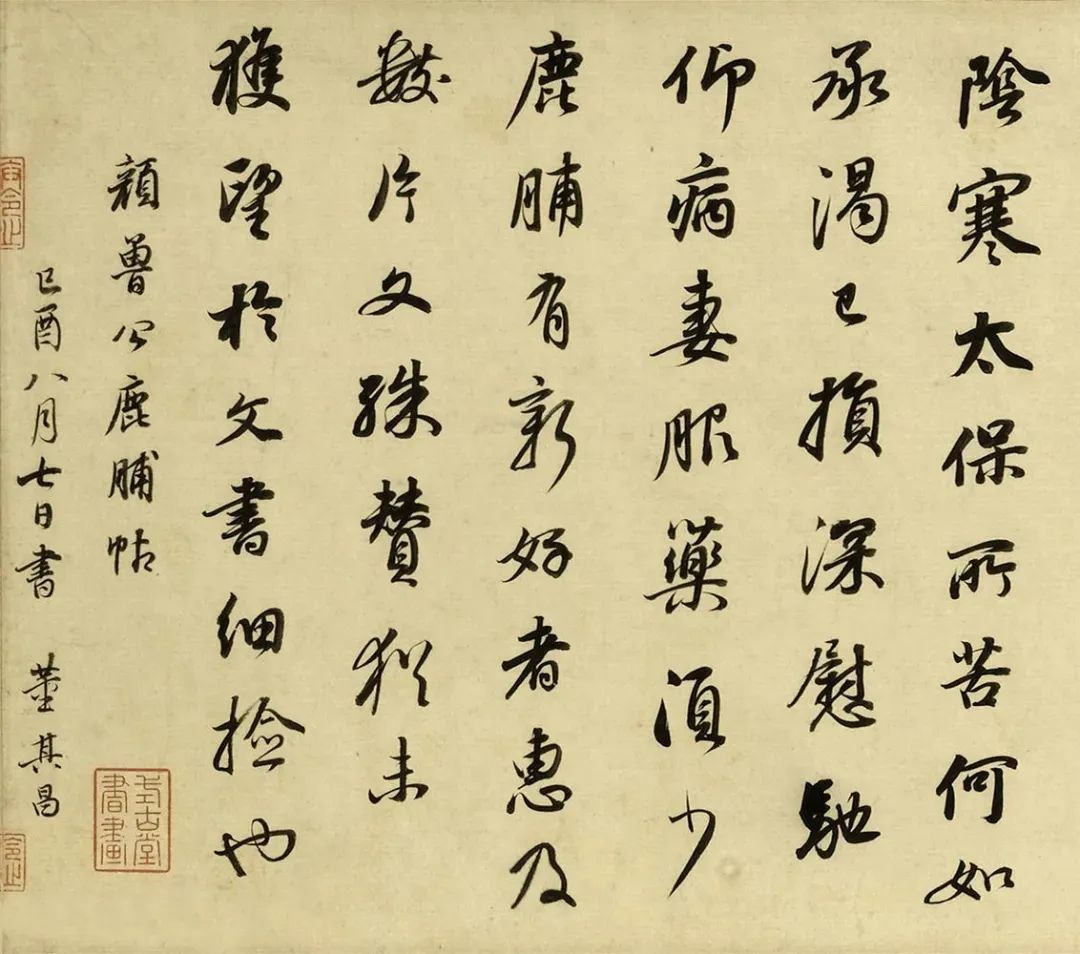 陰寒太保所苦何如
承渴已損深慰馳
仰病妻服藥湏少
鹿脯有新好者惠及
數片文殊賛猶未
獲望於文書細撿也
顏魯公鹿脯帖
己酉八月七日書 董其昌
式古堂書畫